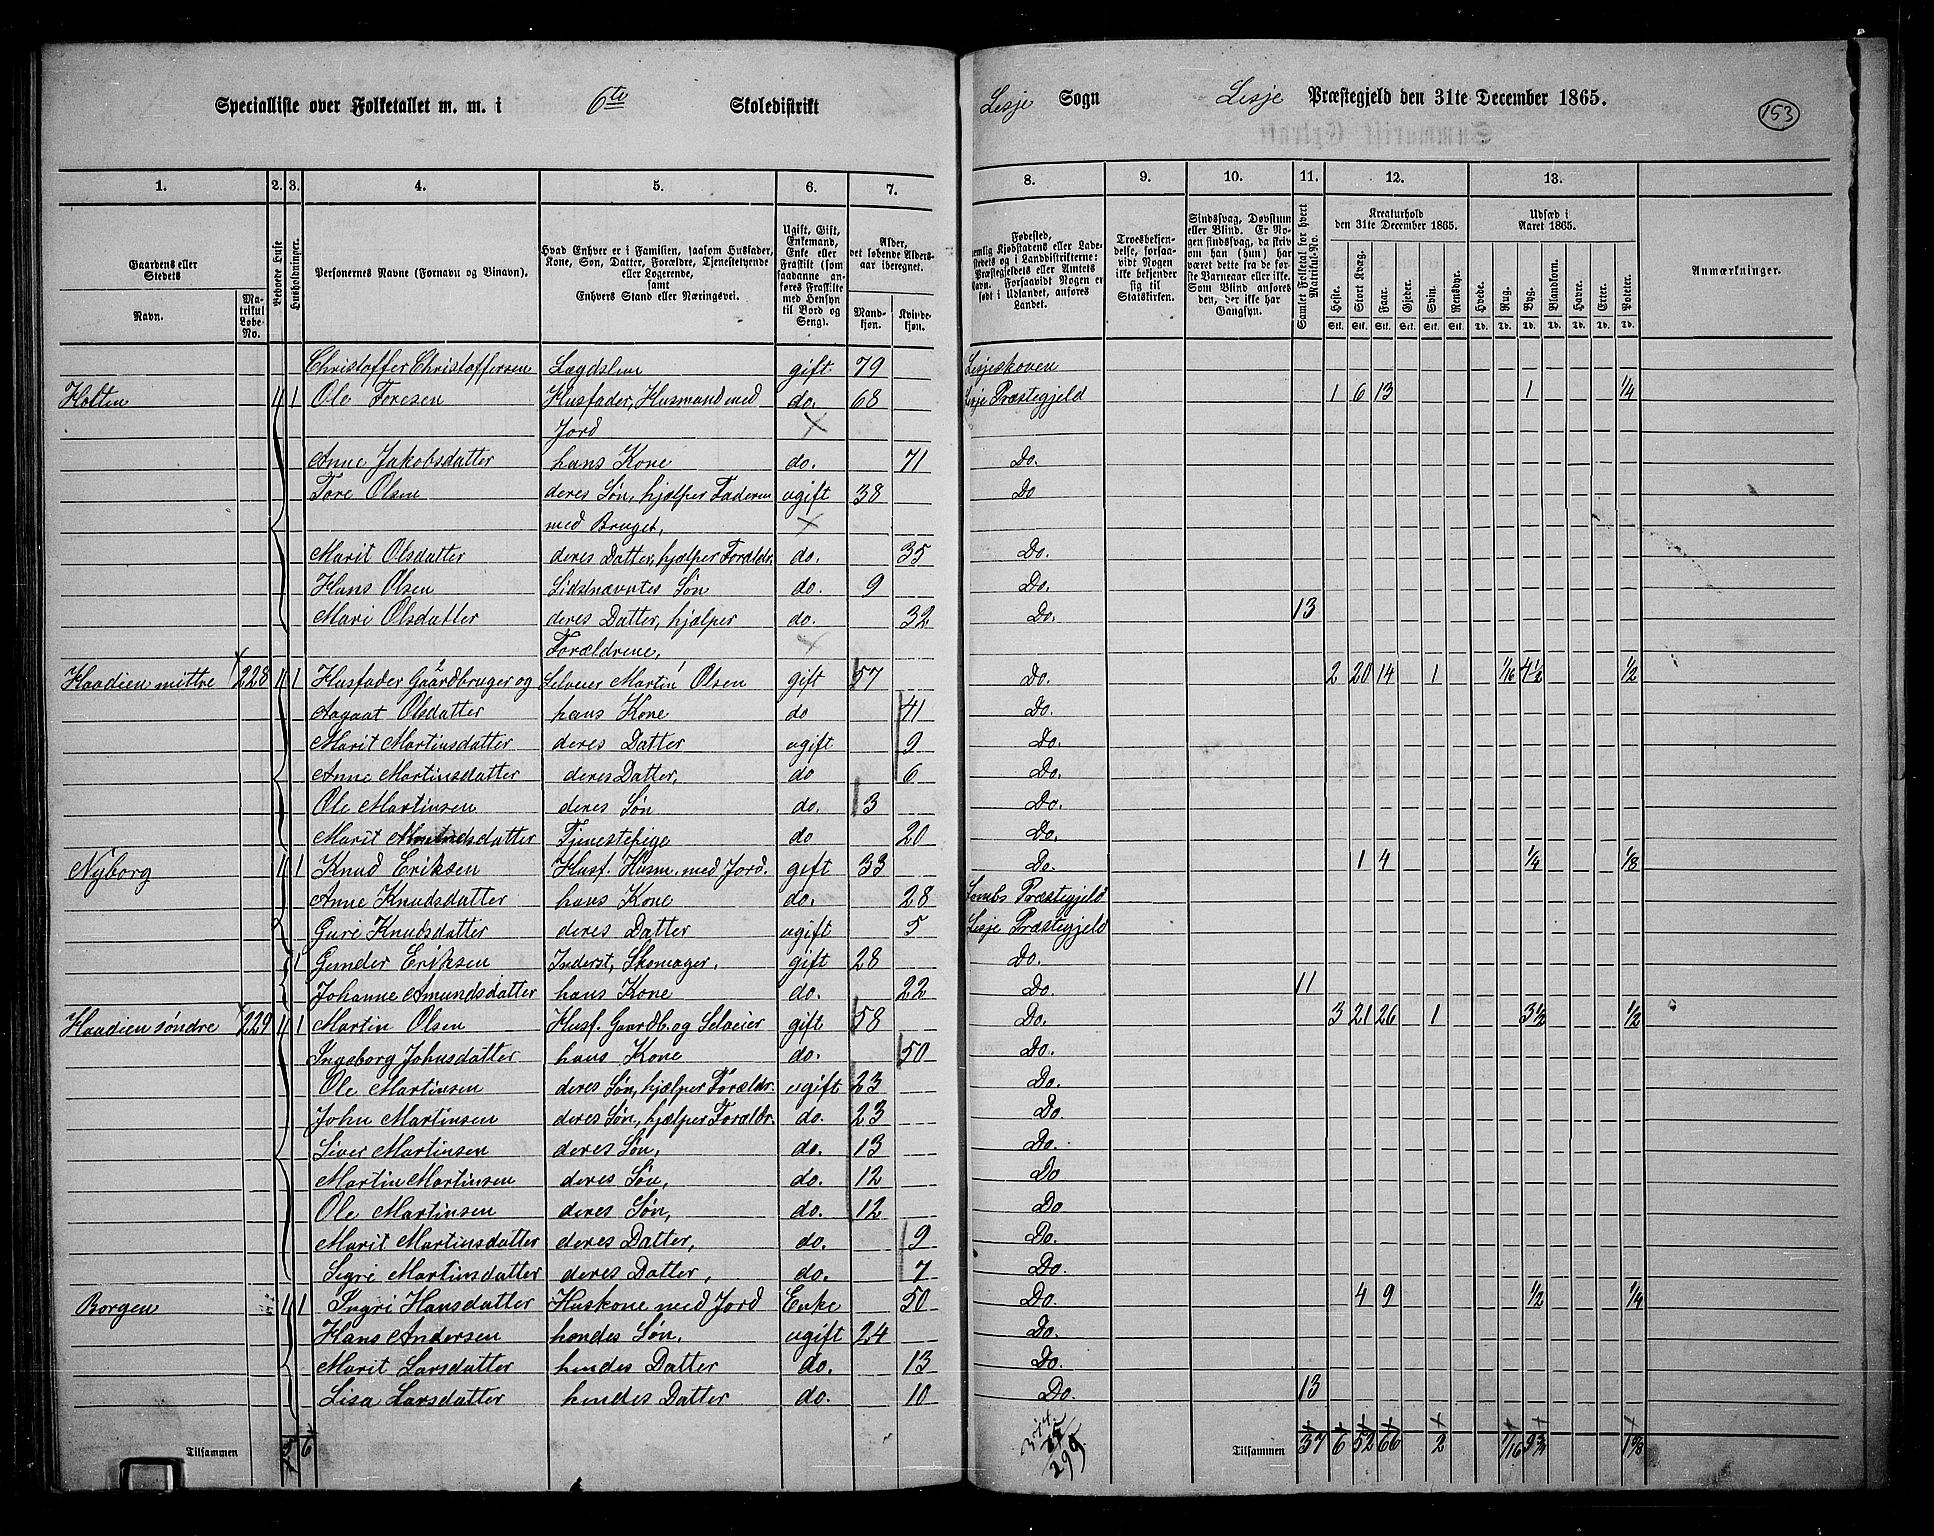 Specialliste over Folketallet m. m. i 6te Skoledistrikt Lesje Sogn Lesje Præstegjeld den 31te December 1865. 153
1. 2. 3. 4. 5. 6. 7. 8. 9. 10. 11. 12. 13.
Gaardens eller Stedets
Navn. Matrikul Løbe-No.
Beboede Huse
Husholdninger.
Personernes Navne (Fornavn og Tilnavn).
Hvad Enhver er i Familien, saasom Husfader, Kone, Søn, Datter, Forældre, Tjenestetyende eller Logerende, samt Enhvers Stand eller Næringsvei.
Ugift, Gift, Enkemand, Enke eller Fraskilt (som saadanne anføres Fraskilte med Hensyn til Bord og Seng).
Alder, det løbende Aldersaar iberegnet.
Mandkjøn. Kvindekjøn.
Fødested, nemlig Kjøbstadens eller Ladestedets og i Landdistrikterne: Præstegjeldets eller Amtets Navn. Forsaavidt Nogen er født i Udlandet, anføres Landet.
Troesbekjendelse, forsaavidt Nogen ikke bekjender sig til Statskirken.
Sindssvag, Døvstum eller Blind. Er Nogen sindssvag, da skriv om han (hun) har været dette fra de første Barneaar eller ikke. Som Blind anføres den, der ikke har Gangsyn.
Samlet Folketal for hvert Matrikul-No.
Kreaturhold den 31te December 1865.
Heste. Stort Kvæg. Faar. Gjeder. Svin. Rensdyr.
Stk. Stk. Stk. Stk. Stk. Stk.
Udsæd i Aaret 1865.
Hvede. Rug. Byg. Blandkorn. Havre. Erter. Poteter.
Td. Td. Td. Td. Td. Td. Td.
Anmærkninger.
Christoffer Christoffersen Lægdslem gift 79 Lesjeskoven
Holten 1 1 Ole Toresen Husfader, Husmand med do. 68 Lesje Præstegjeld 1 6 13 1 1/4
Jord
Anne Jakobsdatter hans Kone do. 71 Do.
Tore Olsen deres Søn, hjælper Faderen ugift 38 Do
med Bruget,
Marit Olsdatter deres Datter, hjælper Forældr. do. 35 Do.
Hans Olsen Sidstnævntes Søn do. 9 Do.
Mari Olsdatter deres Datter, hjælper do. 32 Do. 13
Forældrene,
Haadien mittre 228 1 1 Husfader Gaardbruger og Selveier Martin Olsen gift 57 Do. 2 20 14 1 1/16 4 1/2 1/2
Aagaat Olsdatter hans Kone do 41 Do.
Marit Martinsdatter deres Datter ugift 9 Do.
Anne Martinsdatter deres Datter, do 6 Do.
Ole Martinsen deres Søn do. 3 Do.
Marit Amundsdatter Tjenestepige do 20 Do.
Nyborg 1 1 Knud Eriksen Husf. Husm. med Jord. gift 33 Do. 1 4 1/4 1/8
Anne Knudsdatter hans Kone do. 28 Lombs Præstegjeld
Guri Knudsdatter deres Datter ugift 5 Lesje Præstegjeld
1 Gunder Eriksen Inderst, Skomager. gift 28 Do.
Johanne Amundsdatter hans Kone do. 22 Do. 11
Haadien søndre 229 1 1 Martin Olsen Husf. Gaardb. og Selveier gift 58 Do. 3 21 26 1 3 1/2 1/2
Ingeborg Johnsdatter hans Kone do. 50 Do.
Ole Martinsen deres Søn, hjælper Forældr. ugift 23 Do.
John Martinsen deres Søn, hjælper Forældr. do. 23 Do.
Siver Martinsen deres Søn, do. 13 Do.
Martin Martinsen deres Søn, do. 12 Do
Ole Martinsen deres Søn, do. 12 Do
Marit Martinsdatter deres Datter, do. 9 Do.
Sigri Martinsdatter deres Datter, do. 7 Do.
Borgen 1 1 Ingri Hansdatter Huskone med Jord Enke 50 Do. 4 9 1/2 1/4
Hans Andersen hendes Søn, ugift 24 Do.
Marit Larsdatter hendes Datter do. 13 Do.
Lisa Larsdatter hendes Datter do. 10 Do. 13
Tilsammen 5 6 Tilsammen 37 6 52 66 2 1/16 9 3/4 1 5/8